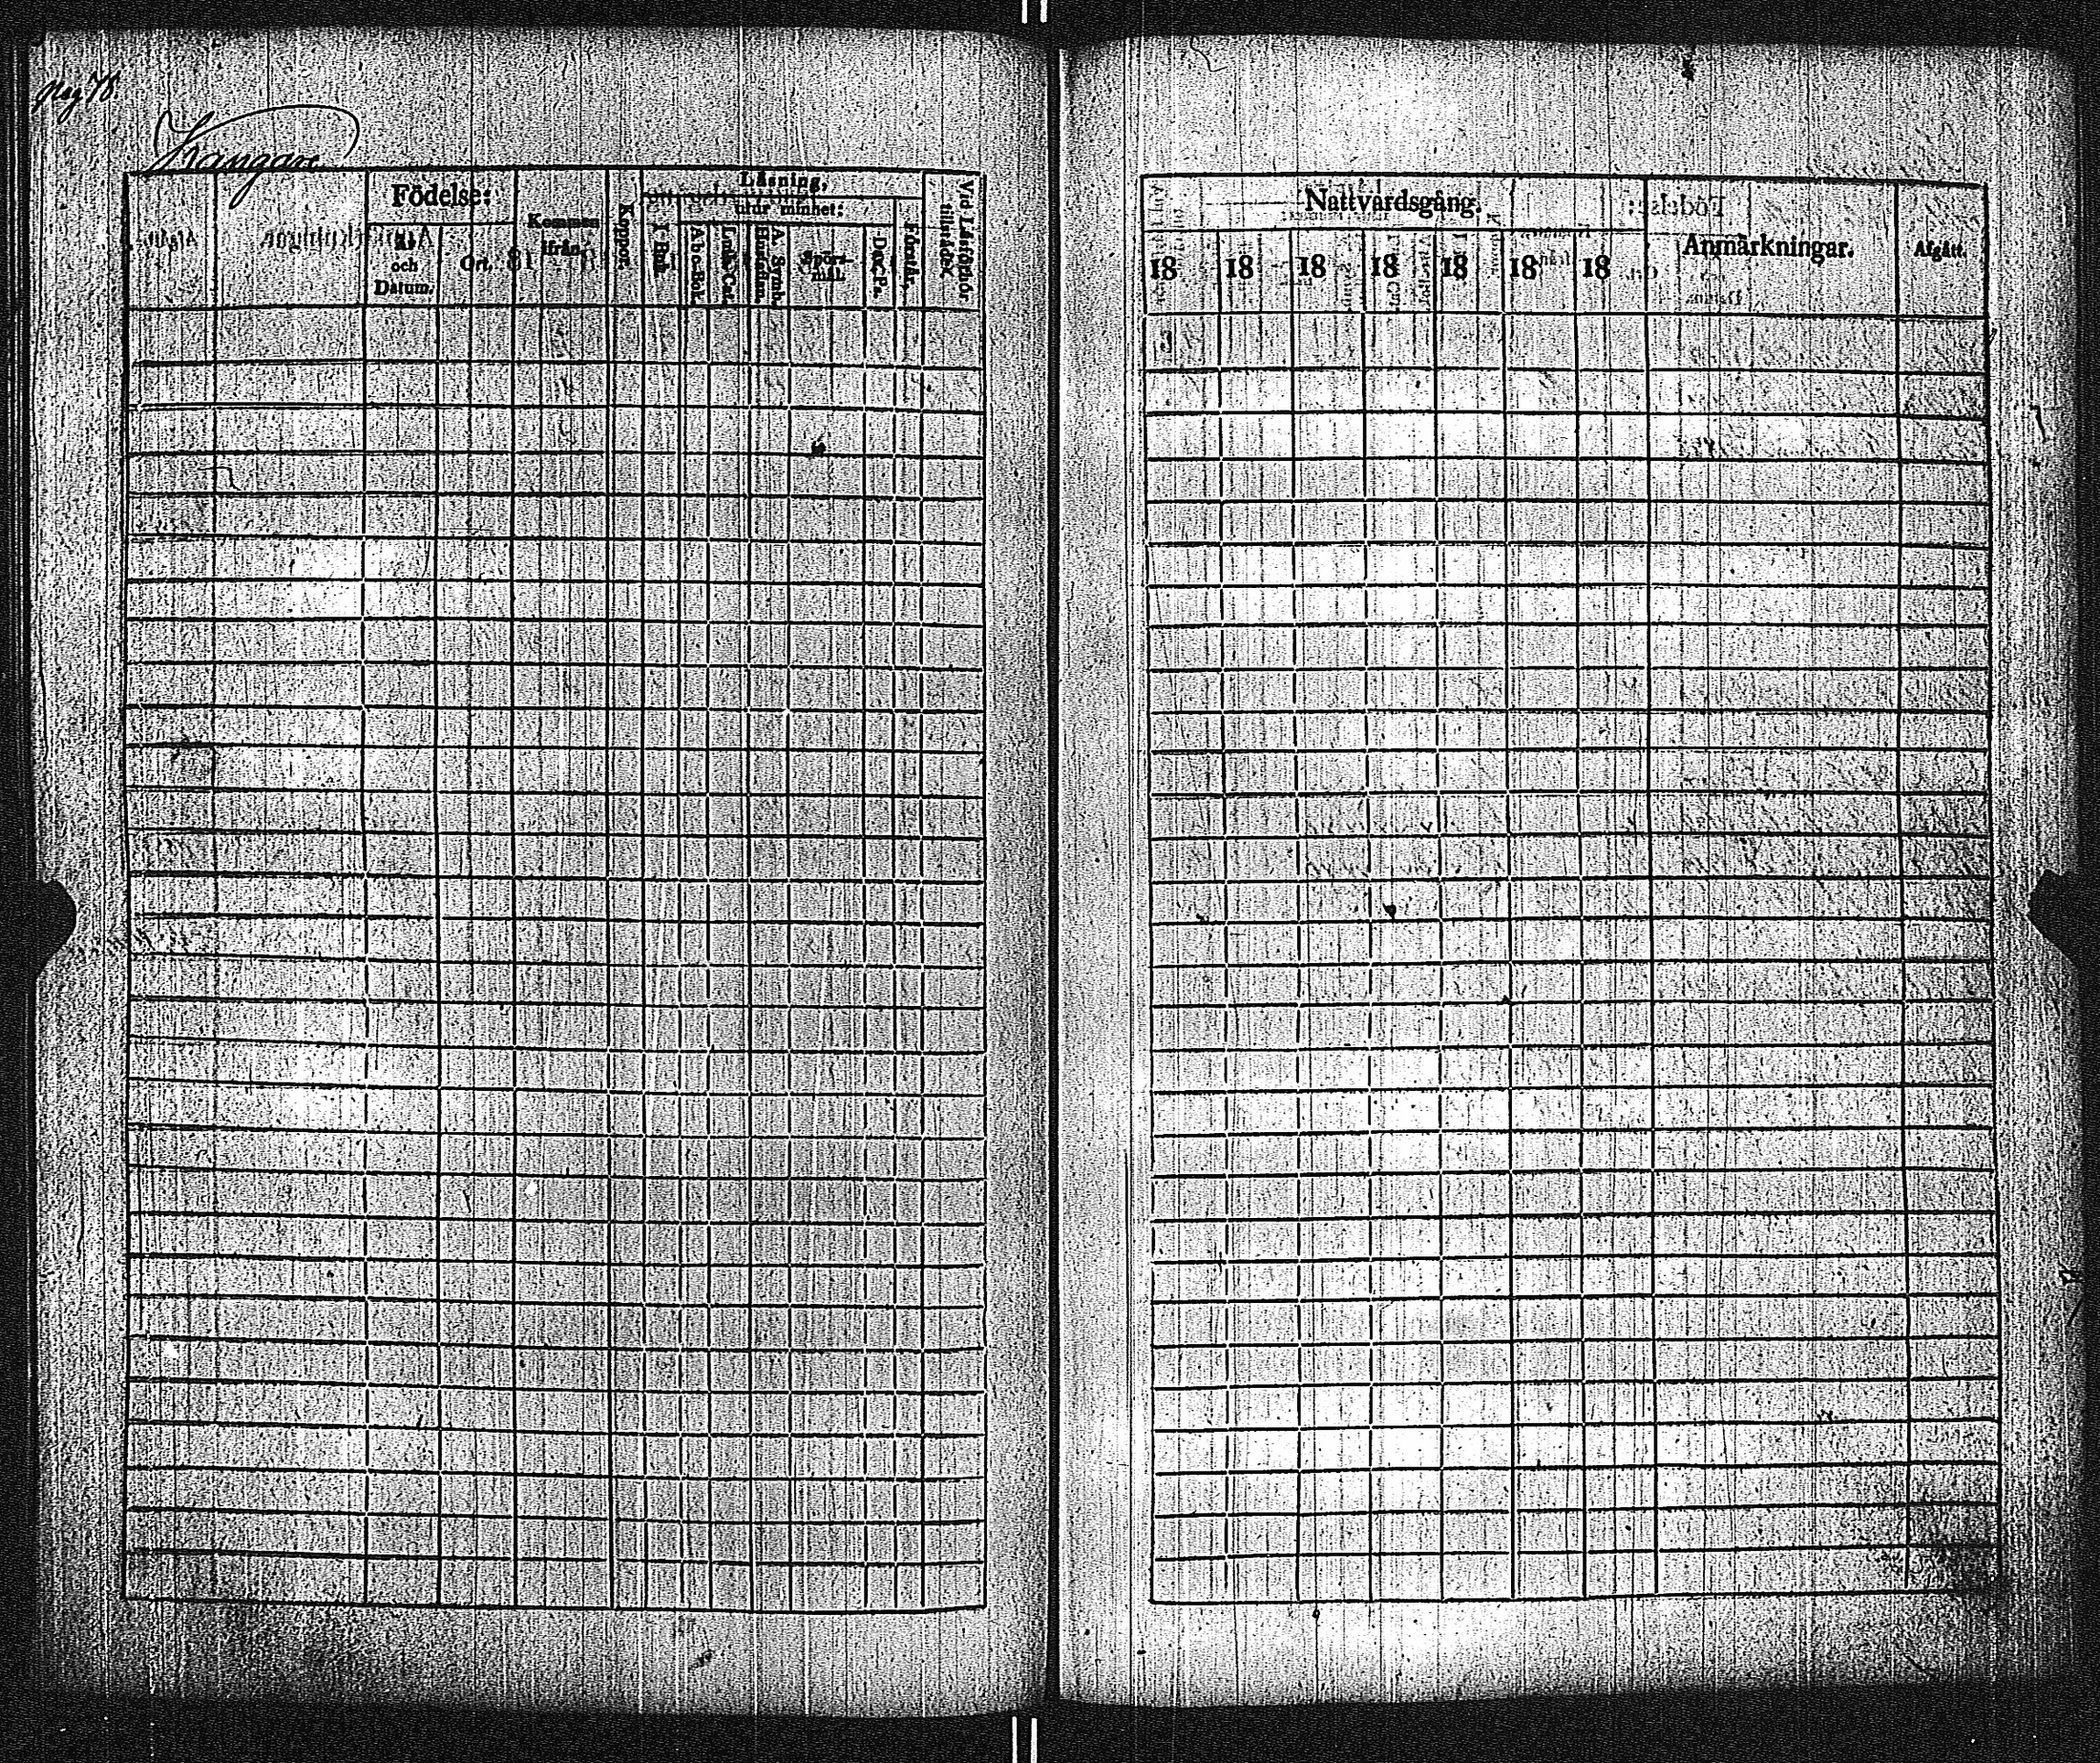 pag 78
Krångare
Födelse:
År och Datum.
Ort.
Kommen ifrån
Koppor.
Läsning,
I Bok.
utur minnet:
A b c-Bok.
Luth. Cat.
A. Symb. Hustafla.
Spörs-mål.
Dav. Ps.
Förstår.
Vid Läsförhör tillstädes.
Nattvardsgång.
18 18 18 18 18 18 18
Anmärkningar.
Afgått.